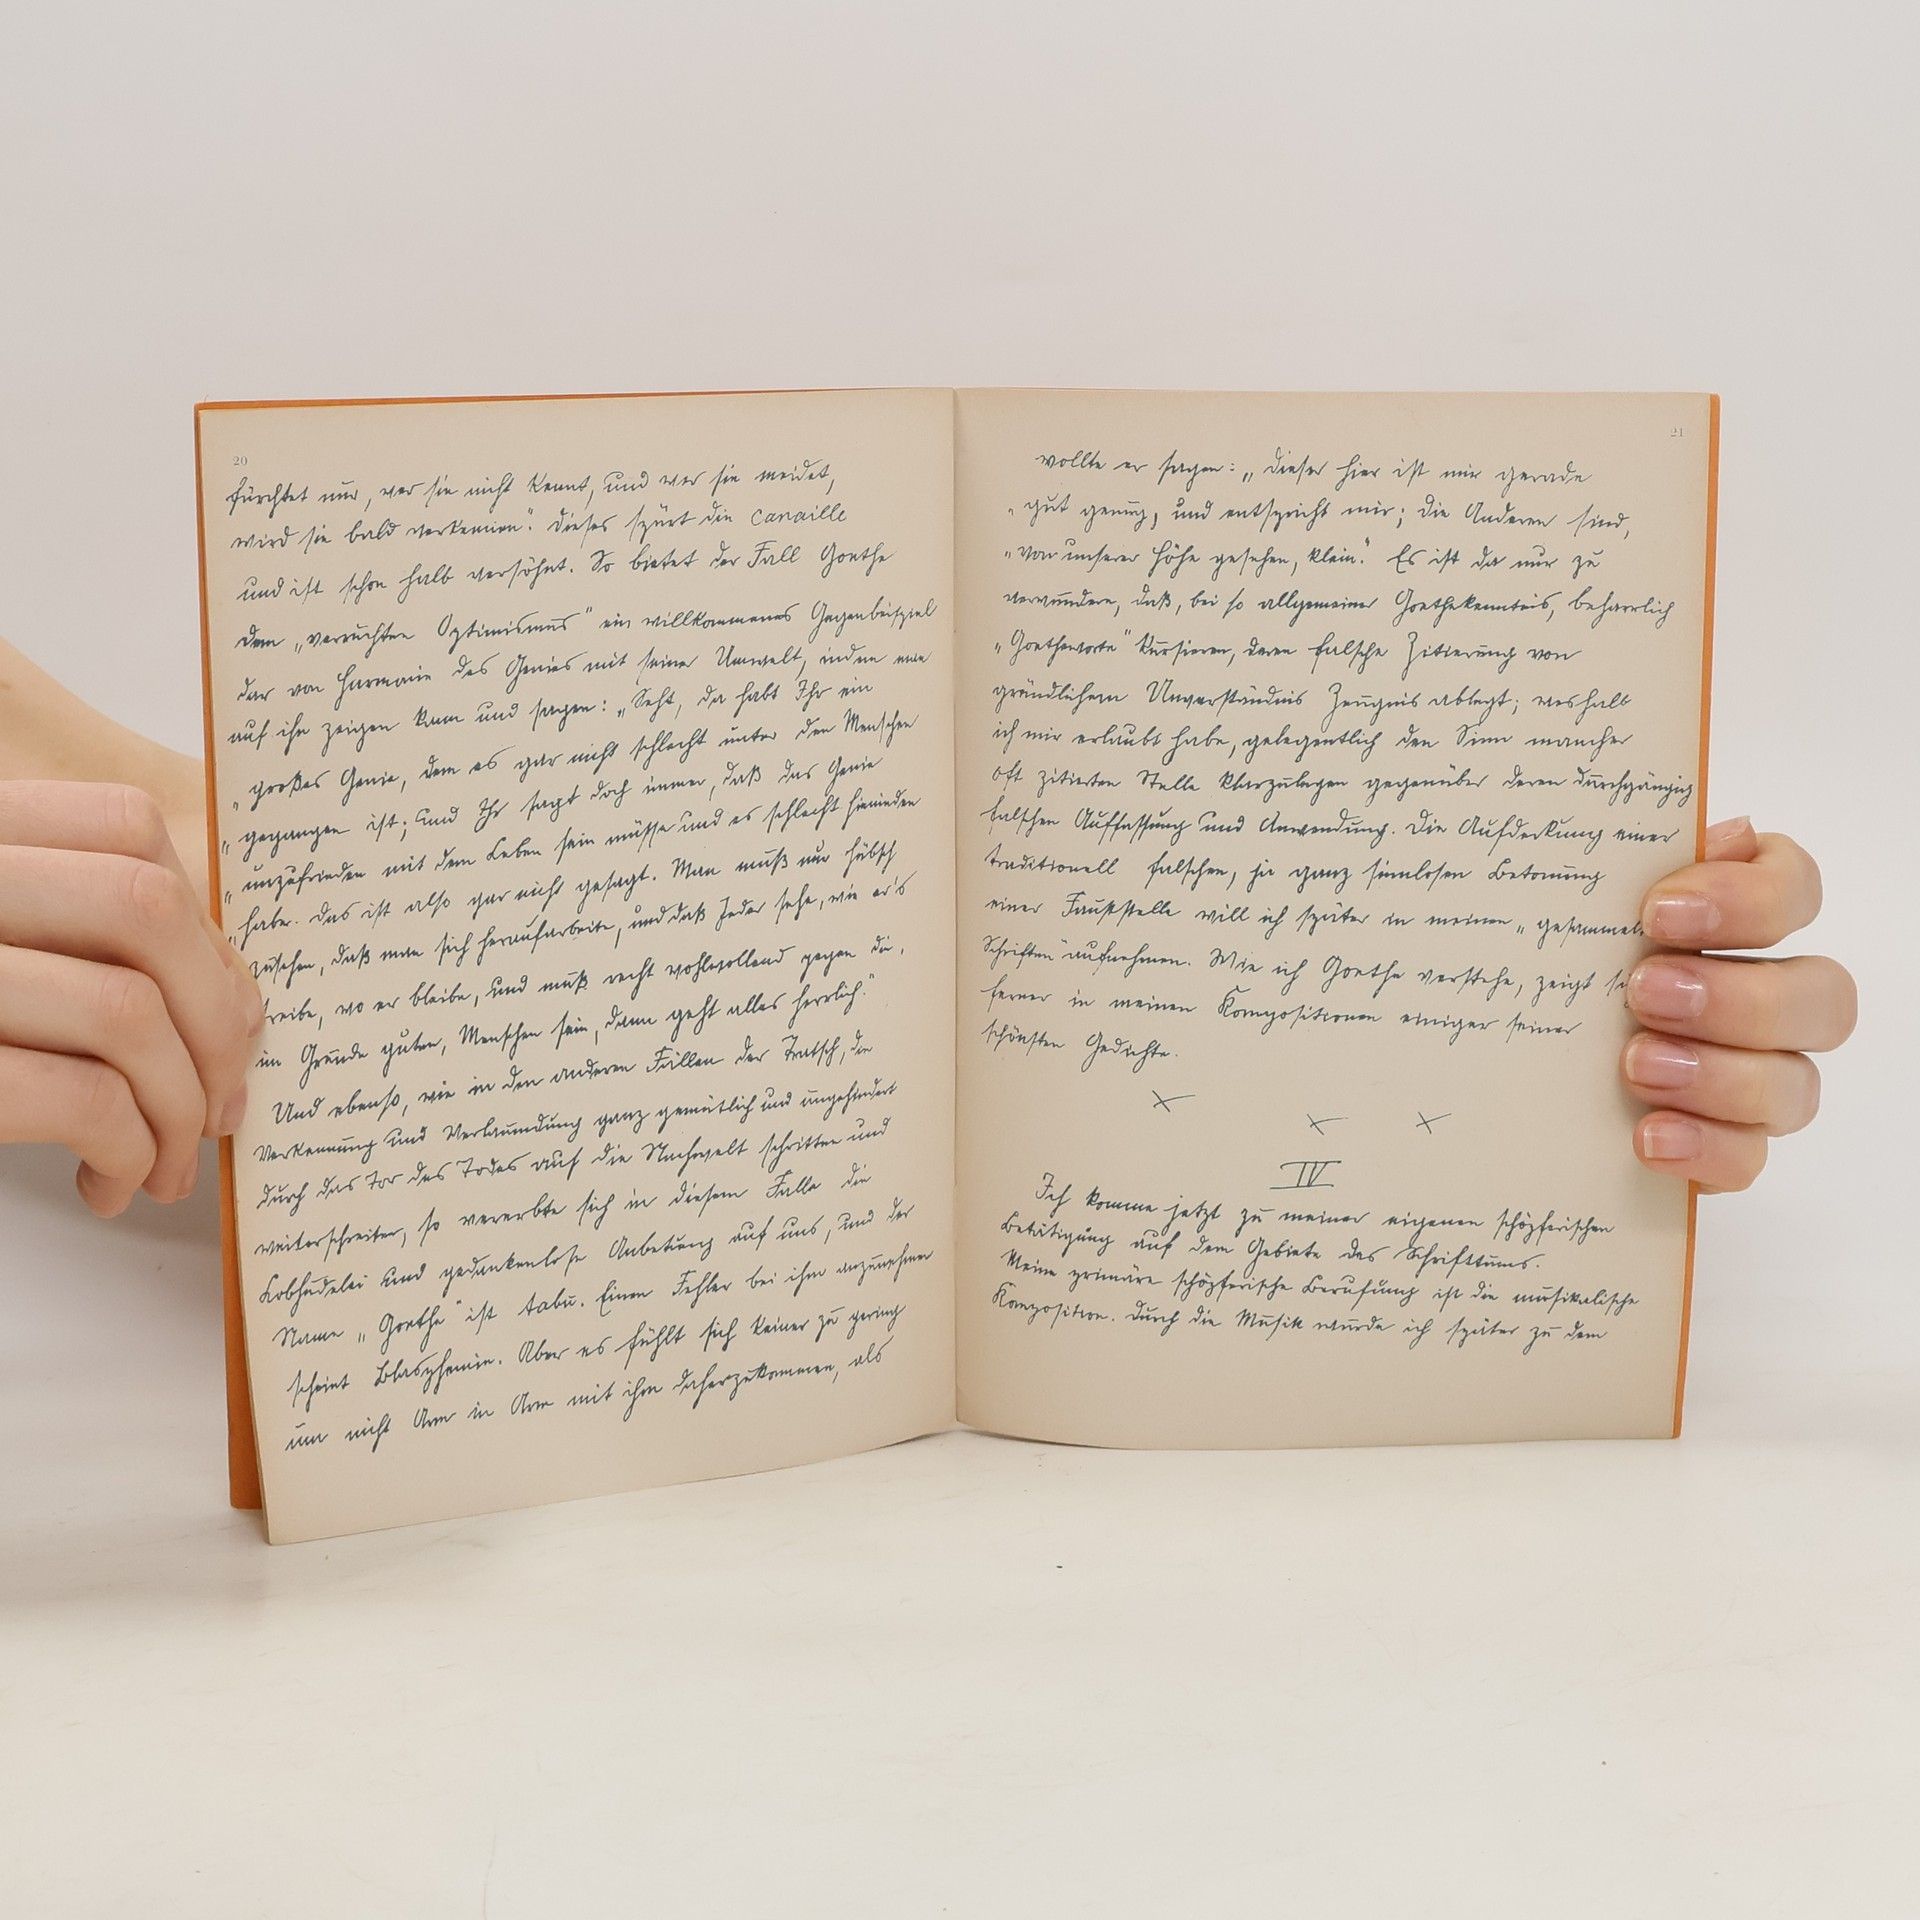 20
fürchtet nur, wer sie nicht kennt, und wer sie meidet,
wird sie bald verkennen". Dieses spürt die canaille
und ist schon halb versöhnt. So bietet der Fall Goethe
dem „verruchten Optimismus" ein willkommenes Gegenbeispiel
dar von Harmonie des Genies mit seiner Umwelt, indem man
auf ihn zeigen kann und sagen: „Seht, da habt Ihr ein
„großes Genie, dem es gar nicht schlecht unter den Menschen
„gegangen ist; und Ihr sagt doch immer, daß das Genie
„unzufrieden mit dem Leben sein müsse und es schlecht hienieden
„habe. Das ist also gar nicht gesagt. Man muß nur hübsch
zusehen, daß man sich heraufarbeite, und daß Jeder sehe, wie er's
treibe, wo er bleibe, und muß recht wohlwollend gegen die,
im Grunde guten, Menschen sein, dann geht alles herrlich."
Und ebenso, wie in den anderen Fällen der Tratsch, die
Verkennung und Verleumdung ganz gemütlich und ungehindert
durch das Tor des Todes auf die Nachwelt schritten und
weiterschreiten, so vererbte sich in diesem Falle die
Lobhudelei und gedankenlose Anbetung auf uns, und der
Name „Goethe" ist tabu. Einen Fehler bei ihm anzunehmen
scheint Blasphemie. Aber es fühlt sich keiner zu gering
um nicht Arm in Arm mit ihm daherzukommen, als
21
wollte er sagen: „Dieser hier ist mir gerade
„gut genug, und entspricht mir; die Anderen sind,
„von unserer Höhe gesehen, klein." Es ist da nur zu
verwundern, daß, bei so allgemeiner Goethekenntnis, beharrlich
„Goetheworte" kursieren, deren falsche Zitierung von
gründlichem Unverständnis Zeugnis ablegt; weshalb
ich mir erlaubt habe, gelegentlich den Sinn mancher
oft zitierten Stelle klarzulegen gegenüber deren durchgängig
falschen Auffassung und Anwendung. Die Aufdeckung einer
traditionell falschen, ja ganz sinnlosen Betonung
einer Fauststelle will ich später in meinen „gesammel.
Schriften" aufnehmen. Wie ich Goethe verstehe, zeigt
ferner in meinen Kompositionen einiger seiner
schönsten Gedichte.
IV
Ich komme jetzt zu meiner eigenen schöpferischen
Betätigung auf dem Gebiete des Schrifttums.
Meine primäre schöpferische Berufung ist die musikalische
Komposition. Durch die Musik wurde ich später zu dem